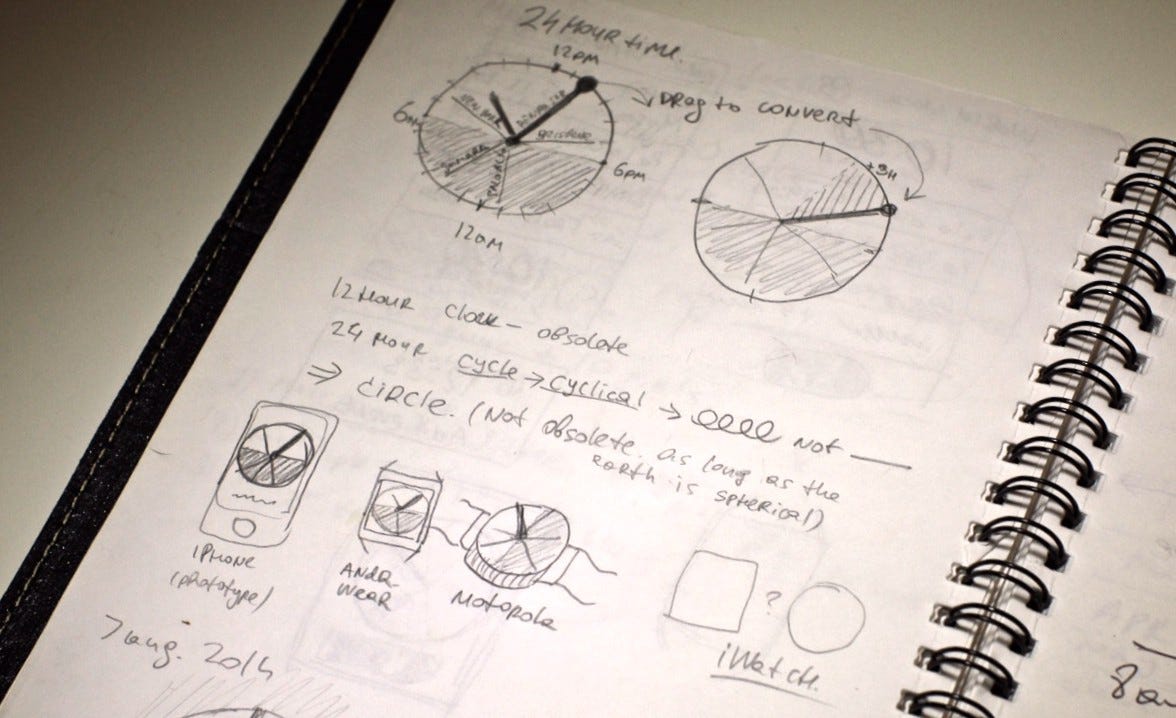 24 Hour time.
12pm
Drag to convert
6am
6pm
12am
+3H
12 Hour clock – obsolete
24 Hour cycle → cyclical → not
⇒ circle. (Not obsolete as long as the
earth is spherical)
iPhone
(prototype)
Andr.
Wear
Motorola
?
iWatch.
7 aug. 2014
8am